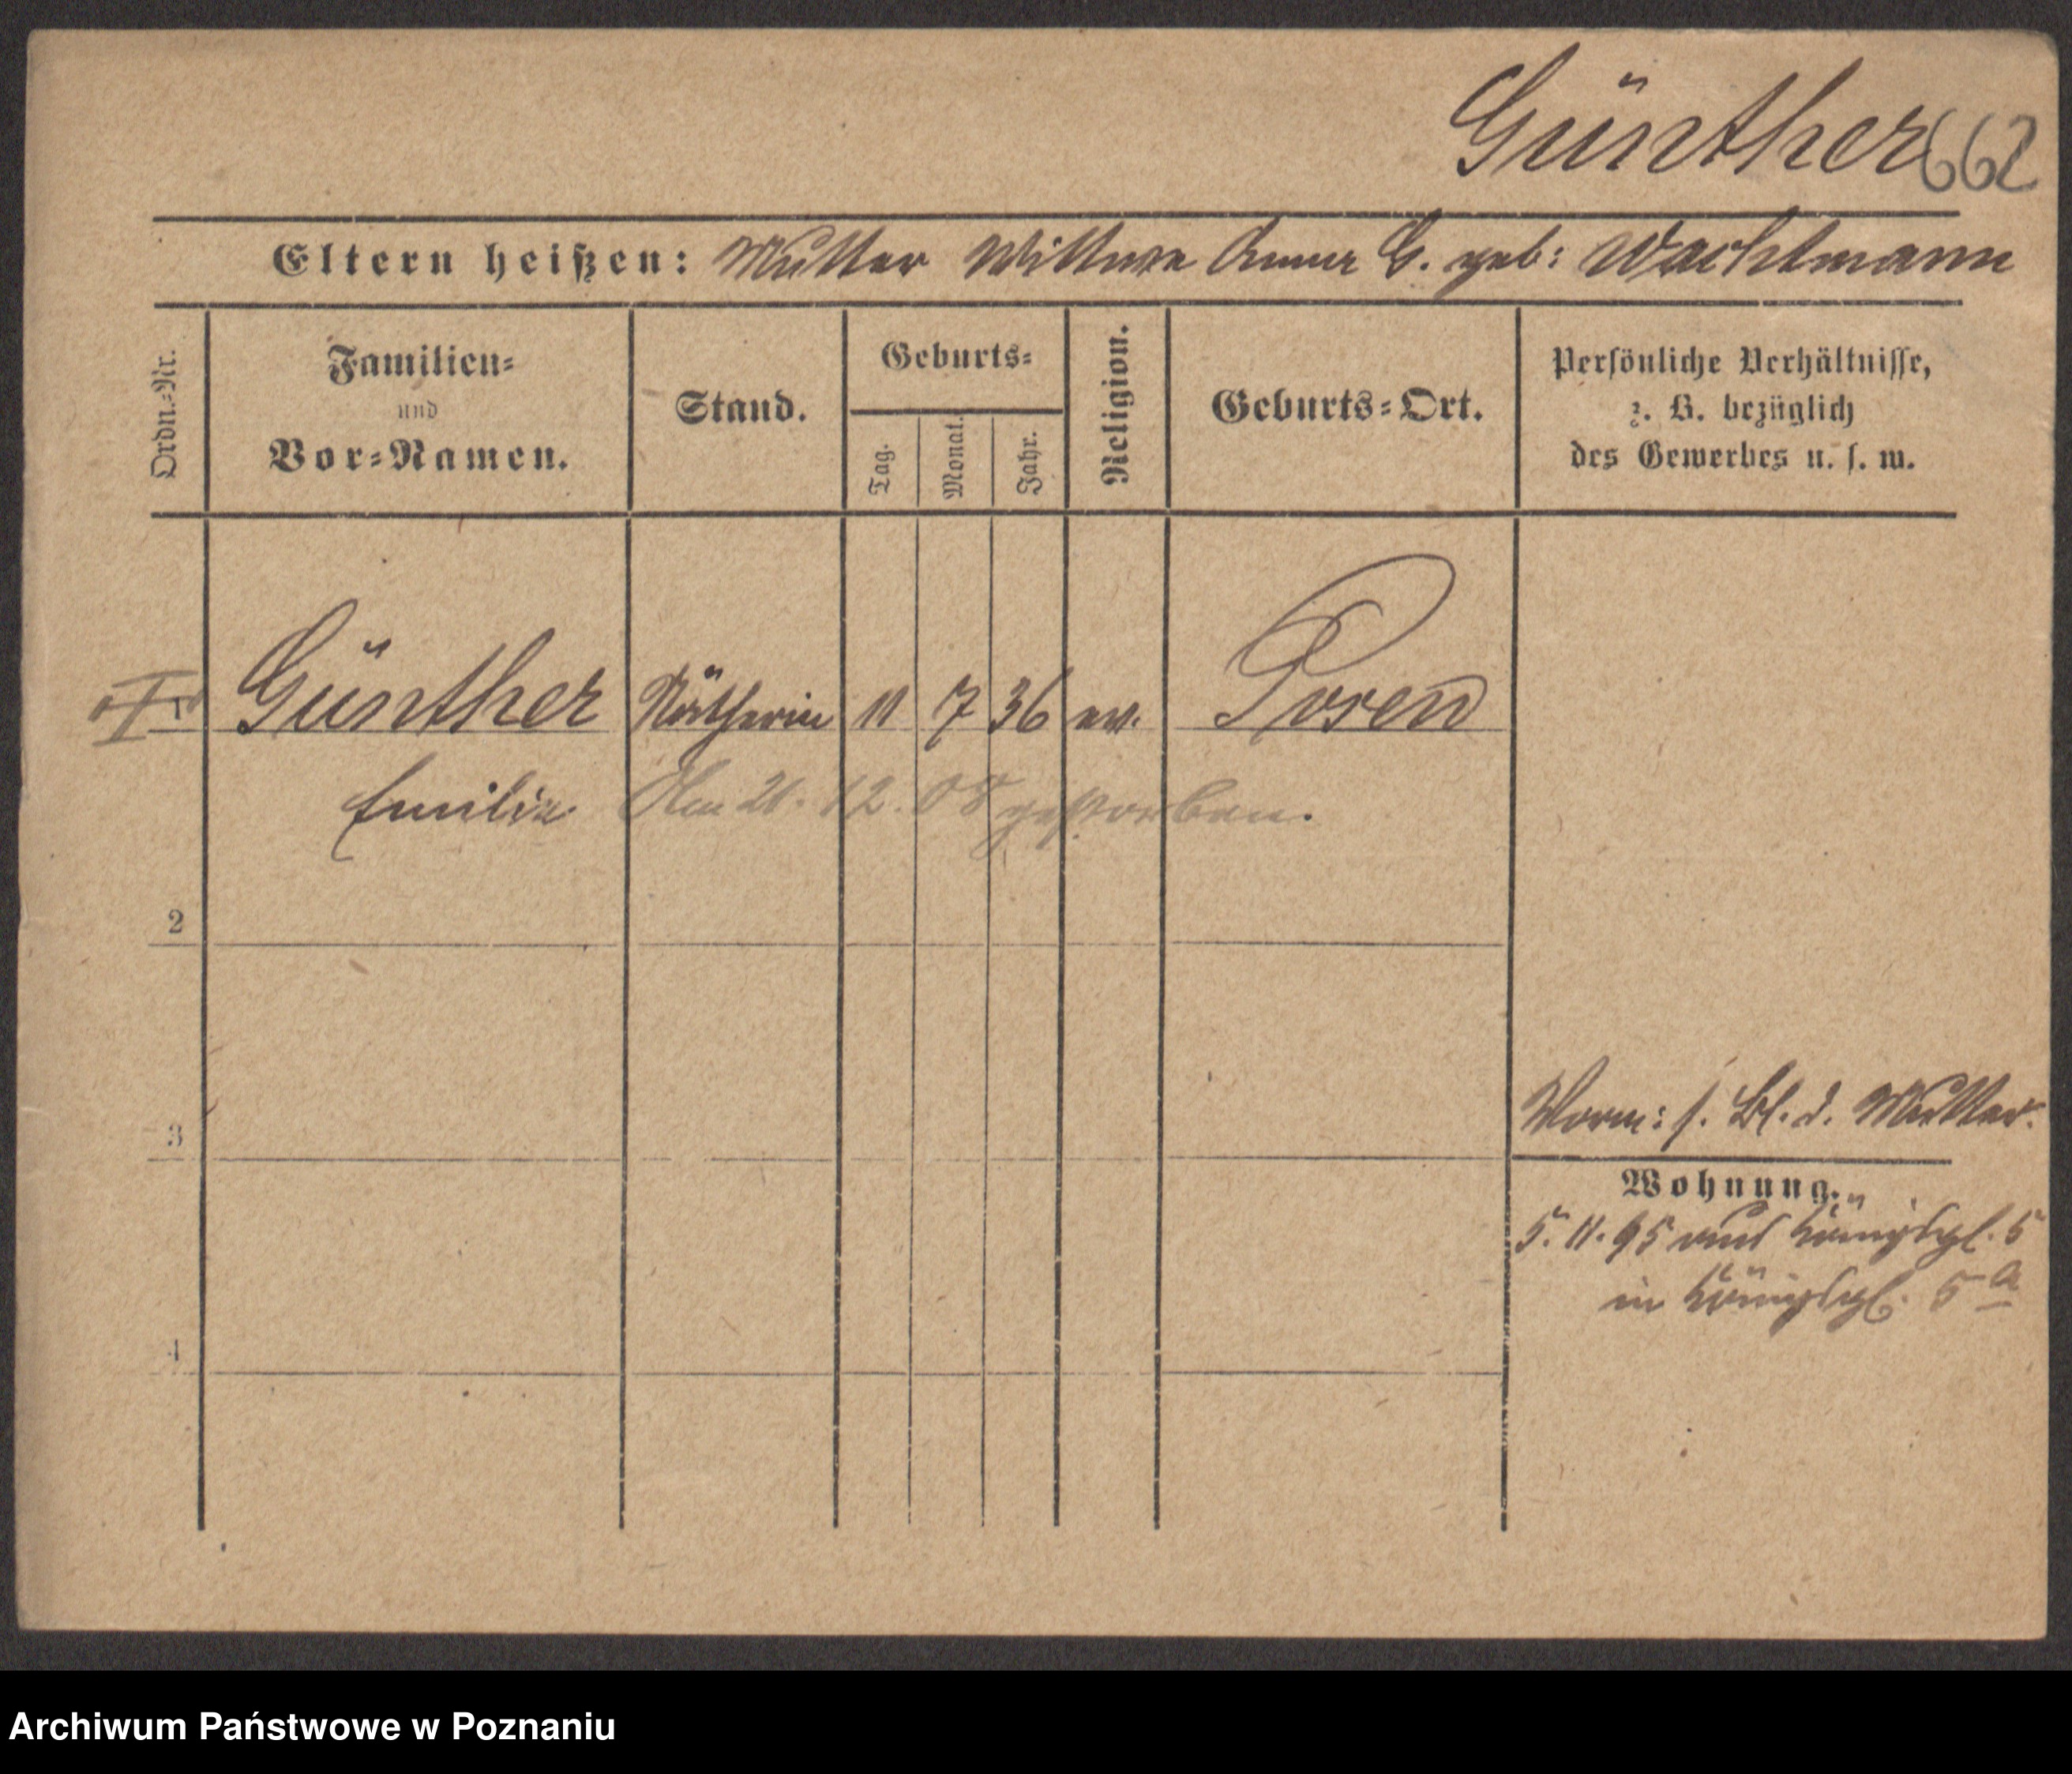 Günther 662
Eltern heißen: Mutter Wittwe Anna G. geb: Wachtmann
Ordn.-Nr.
Familien-
und
Vor-Namen.
Stand.
Geburts-
Tag.
Monat.
Jahr.
Religion.
Geburts-Ort.
Persönliche Verhältnisse,
z. B. bezüglich
des Gewerbes u. s. w.
1 Günther Nätherin 11 7 36 ev. Posen
Emilie Am 21. 12. 08 gestorben.
2
3
4
Vorm: s. Bl. d. Mutter.
Wohnung.
5. 11. 95 aus Königspl. 5
in Königspl. 5 a
Archiwum Państwowe w Poznaniu